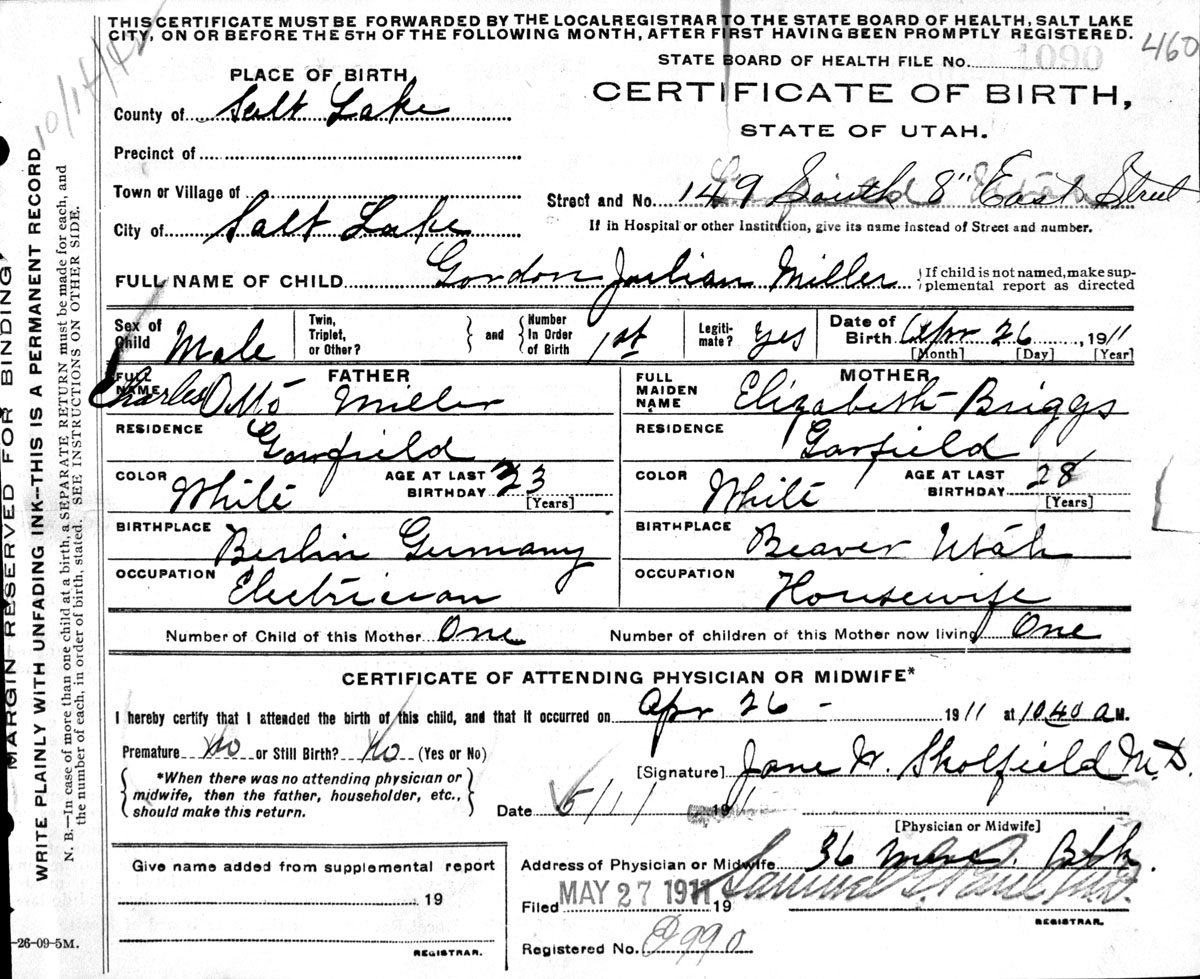 THIS CERTIFICATE MUST BE FORWARDED BY THE LOCAL REGISTRAR TO THE STATE BOARD OF HEALTH, SALT LAKE
CITY, ON OR BEFORE THE 5TH OF THE FOLLOWING MONTH, AFTER FIRST HAVING BEEN PROMPTLY REGISTERED.
460
STATE BOARD OF HEALTH FILE No. 1090
10/14/42
PLACE OF BIRTH,
CERTIFICATE OF BIRTH,
County of Salt Lake
STATE OF UTAH.
Precinct of
Town or Village of
Street and No. 149 South 8" East Street
City of Salt Lake
If in Hospital or other Institution, give its name instead of Street and number.
FULL NAME OF CHILD Gordon Julian Miller {If child is not named, make sup-
plemental report as directed
Sex of Child Male Twin, Triplet, or Other? } and { Number In Order of Birth 1st Legiti- mate? yes Date of Birth Apr 26, 1911
[Month] [Day] [Year]
FATHER
MOTHER
FULL NAME Charles Otto Miller
FULL MAIDEN NAME Elizabeth Briggs
RESIDENCE Garfield
RESIDENCE Garfield
COLOR White AGE AT LAST BIRTHDAY 23 [Years]
COLOR White AGE AT LAST BIRTHDAY 28 [Years]
BIRTHPLACE Berlin Germany
BIRTHPLACE Beaver Utah
OCCUPATION Electrician
OCCUPATION Housewife
Number of Child of this Mother One Number of children of this Mother now living One
CERTIFICATE OF ATTENDING PHYSICIAN OR MIDWIFE*
I hereby certify that I attended the birth of this child, and that it occurred on Apr 26 - 1911 at 10 40 a M.
Premature no or Still Birth? no (Yes or No)
*When there was no attending physician or
midwife, then the father, householder, etc.,
should make this return.
[Signature] Jane W. Sholfield M.D.
Date 5/1/ 191
[Physician or Midwife]
Give name added from supplemental report
19
REGISTRAR.
Address of Physician or Midwife 36 Blk.
Filed MAY 27 1911 19 Samuel G. Paul M.D.
REGISTRAR.
Registered No. 990
MARGIN RESERVED FOR BINDING
WRITE PLAINLY WITH UNFADING INK--THIS IS A PERMANENT RECORD
N. B.—In case of more than one child at a birth, a SEPARATE RETURN must be made for each, and
the number of each, in order of birth, stated. SEE INSTRUCTIONS ON OTHER SIDE.
-26-09-5M.